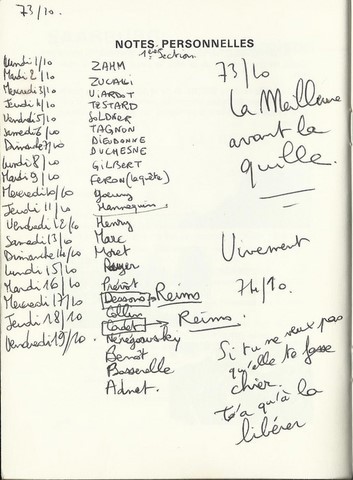 73/10.
NOTES PERSONNELLES
1ère Section
Lundi 1/10
Mardi 2/10
Mercredi 3/10
Jeudi 4/10
Vendredi 5/10
Samedi 6/10
Dimanche 7/10
Lundi 8/10
Mardi 9/10
Mercredi 10/10
Jeudi 11/10
Vendredi 12/10
Samedi 13/10
Dimanche 14/10
Lundi 15/10
Mardi 16/10
Mercredi 17/10
Jeudi 18/10
Vendredi 19/10.
ZAHM
ZUCALI
VIARDOT
TESTARD
SOLDNER
TAGNON
DIEUDONNE
DUCHESNE
GILBERT
FERON (la quête)
Mannequin.
Henry
Marc
Moret
Prévot
Dessons → Reims
Collin
Cadet → Reims.
Benoît
Basserelle
Adnet.
73/10
La Meilleure
avant la
quille.
Vivement
74/10.
Si tu ne veux pas
qu'elle te fasse
chier.
t'a qu'à la
libérer